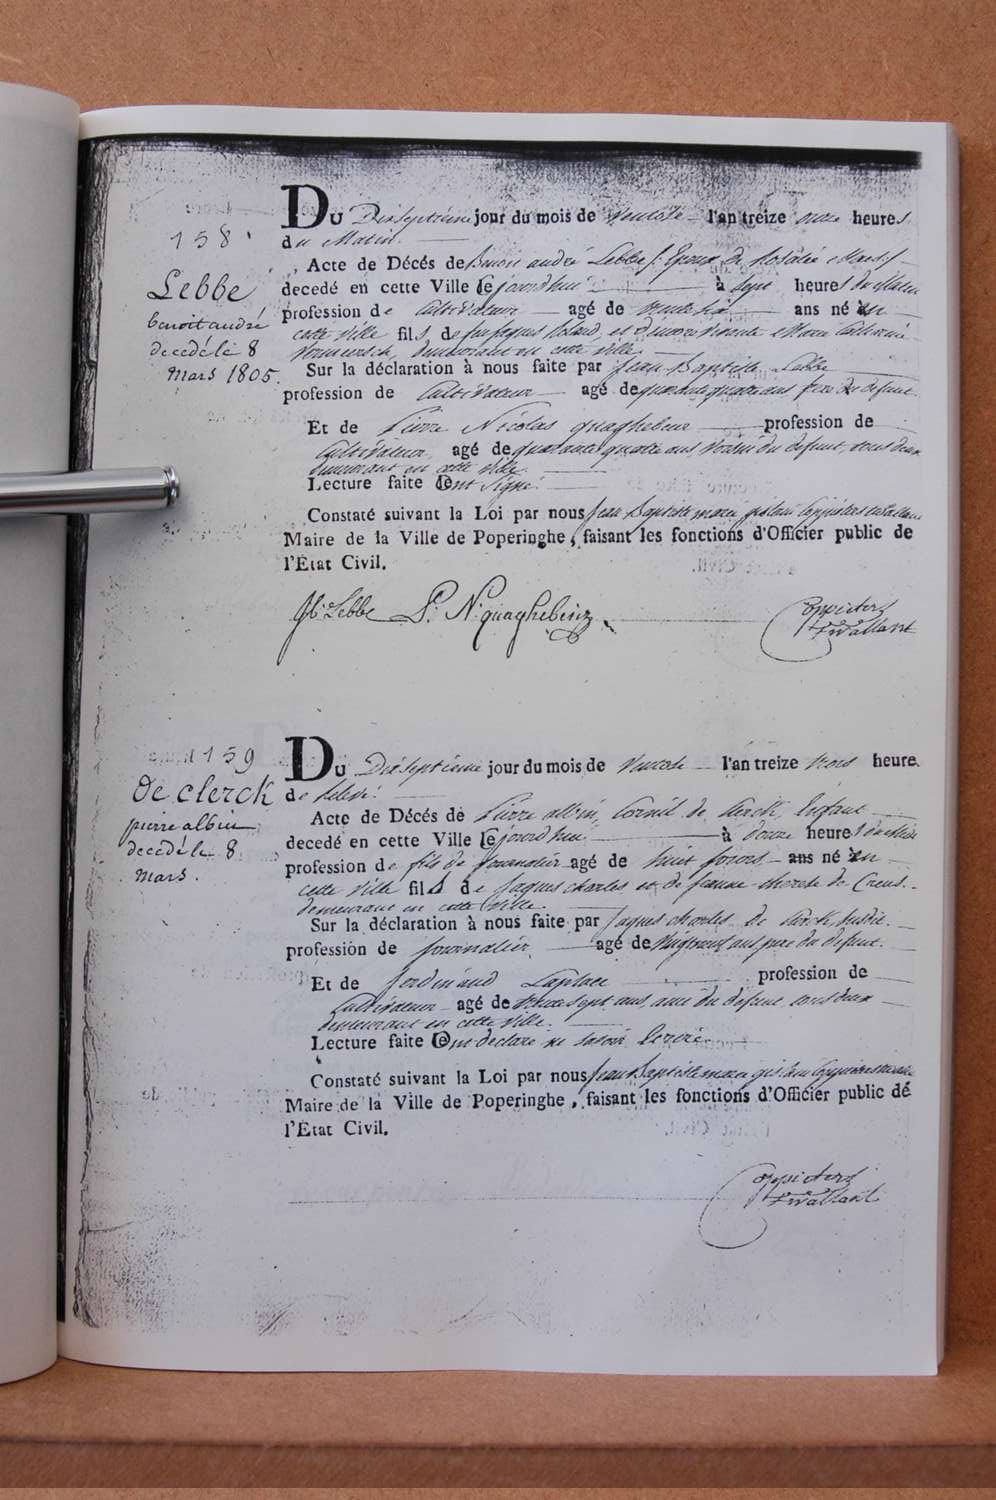 158
Lebbe
benoit andré
decedé le 8
mars 1805.
Du Dixseptieme jour du mois de Ventose l'an treize onze heures
du Matin.
Acte de Décés de Benoit andré Lebbe Epoux de Rosalie
decedé en cette Ville le jourdhui à sept heures du Matin
profession de Cultivateur agé de trente six ans né en
cette ville fils de feu Jaques et
demeurant en cette ville.
Sur la déclaration à nous faite par Jean Baptiste Lebbe
profession de Cultivateur agé de quarante quatre ans frere du defunt.
Et de Pierre Nicolas quaghebeur profession de
Cultivateur agé de quarante quatre ans voisin du defunt, tous deux
demeurant en cette ville.
Lecture faite ont signé.
Constaté suivant la Loi par nous Jean Baptiste
Maire de la Ville de Poperinghe, faisant les fonctions d'Officier public de
l'État Civil.
Jb: Lebbe P. N. quaghebeur
Coppieters
t'wallant
159
De clerck
pierre albin
decedé le 8
mars.
Du Dixseptieme jour du mois de Ventose l'an treize trois heure
de relevé.
Acte de Décés de Pierre albin, Cornil de Clerck, Enfant
decedé en cette Ville le jourdhui à douze heures du Matin
profession de fils de Journalier agé de huit jours ans né en
cette ville fils de Jaques charles et de
demeurant en cette ville.
Sur la déclaration à nous faite par Jaques charles de Clerck
profession de Journalier agé de ans pere du defunt.
Et de ferdinand Laplace profession de
Cultivateur agé de trente sept ans, ami du defunt tous deux
demeurant en cette ville.
Lecture faite ont declaré ne savoir
Constaté suivant la Loi par nous Jean Baptiste
Maire de la Ville de Poperinghe, faisant les fonctions d'Officier public dé
l'État Civil.
Coppieters
t'wallant